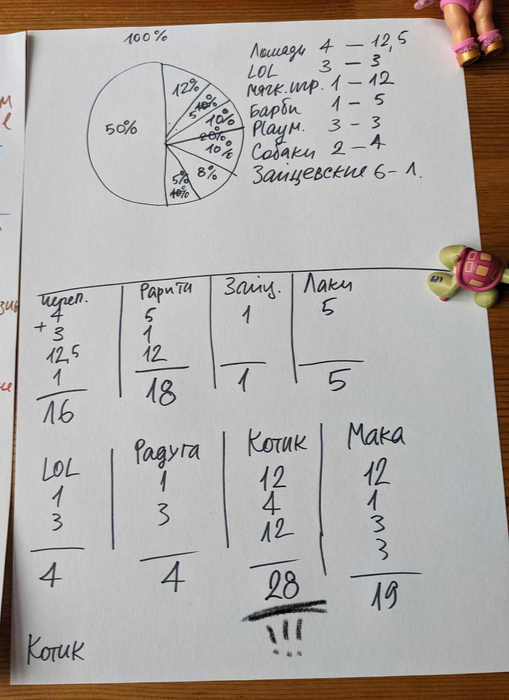 100%
50%
12%
5%
10%
10%
20%
10%
8%
5%
40%
Лошади 4 – 12,5
LOL 3 – 3
мягк.игр. 1 – 12
Барби 1 – 5
Playм. 3 – 3
Собаки 2 – 4
Зайцевские 6 – 1.
Череп. Рарити Зайц. Лаки
4 5 1 5
+ 3 1
12,5 12
1
16 18 1 5
LOL Радуга Котик Мака
1 1 12 12
3 3 4 1
12 3
3
4 4 28 19
!!!
Котик